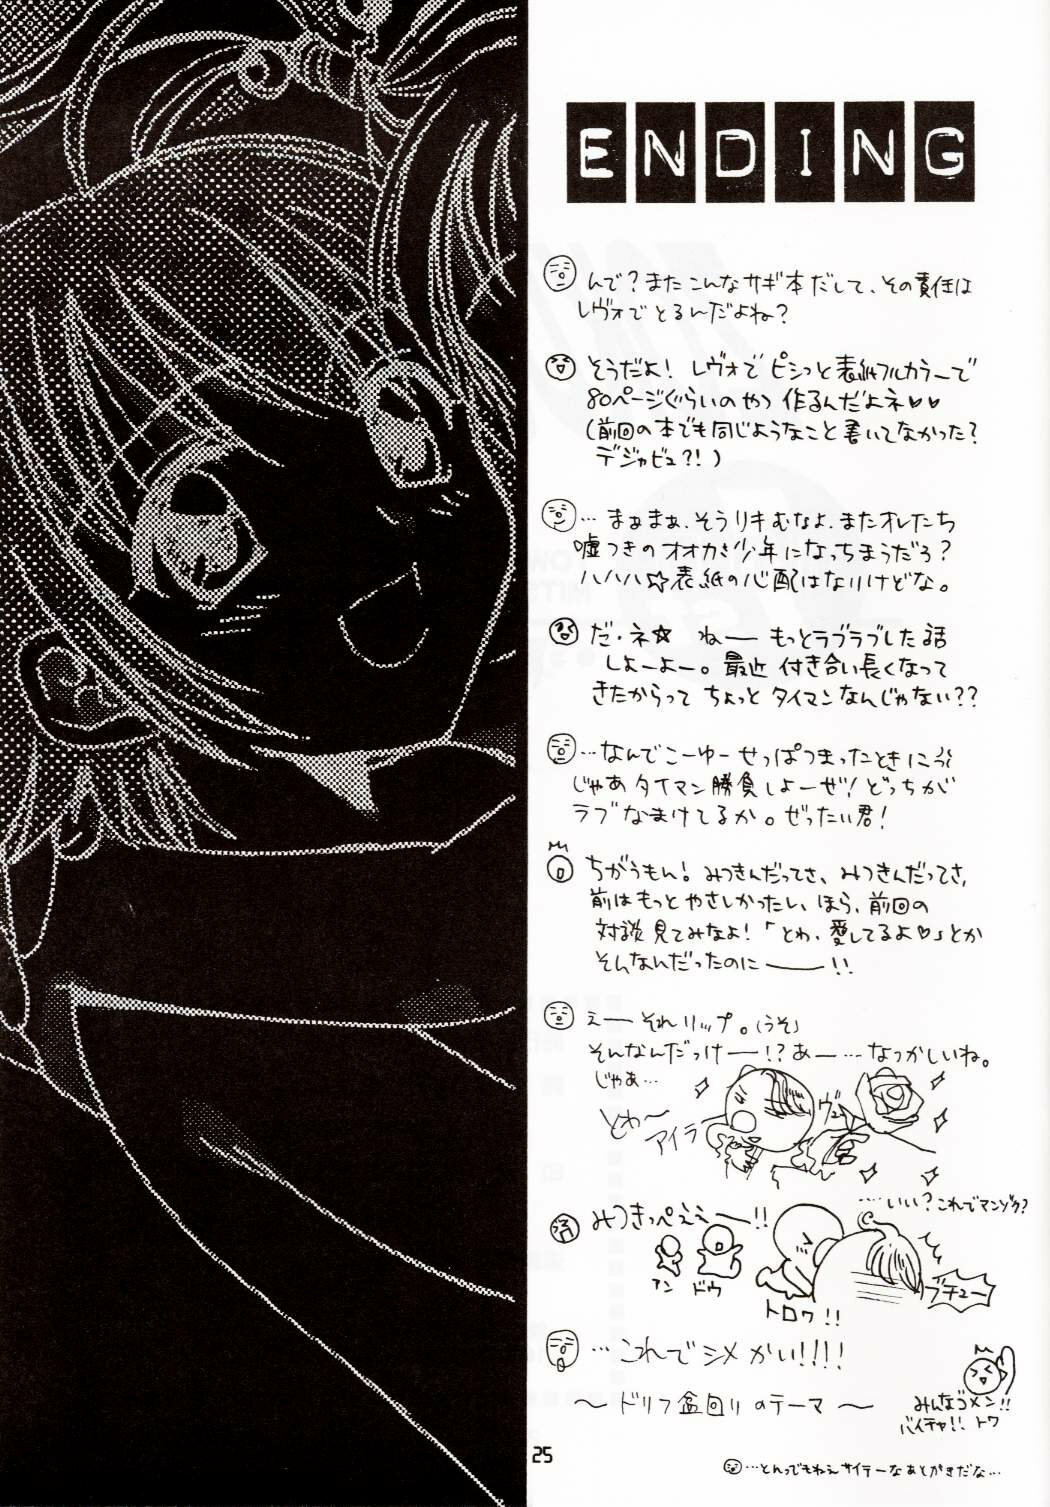 ENDING
んで？またこんなサギ本だして、その責任は
レヴォでとるんだよね？
そうだよ！レヴォでピシっと表紙フルカラーで
80ページぐらいのやつ作るんだよネ♡♡
(前回の本でも同じようなこと書いてなかった？
デジャビュ?!)
…まぁまぁ、そうリキむなよ、またオレたち
嘘つきのオオカミ少年になっちまうだろ？
ハハハ☆表紙の心配はないけどな。
だ・ネ☆ ねーもっとラブラブした話
しよーよー。最近付き合い長くなって
きたからってちょっとタイマンなんじゃない??
…なんでこーゆーせっぱつまったときに
じゃあタイマン勝負しよーぜ！どっちが
ラブなまけてるか。ぜったい君！
ちがうもん！みつきんだってさ、みつきんだってさ、
前はもっとやさしかったし、ほら、前回の
対談見てみなよ！「とわ、愛してるよ♡」とか
そんなんだったのに――!!
えーそれリップ。(うそ)
そんなんだっけー!?あー…なつかしいね。
じゃあ…
とわ〜
アイラ
ヴュ
……いい？これでマンゾク？
みつきっぺええー!!
アン ドウ
トロワ!!
ブチュー
…これでシメかい!!!!
〜ドリフ盆回りのテーマ〜
みんなゴメン!!
バイチャ!! トワ
25
…とんでもねえサイテーなあとがきだな…